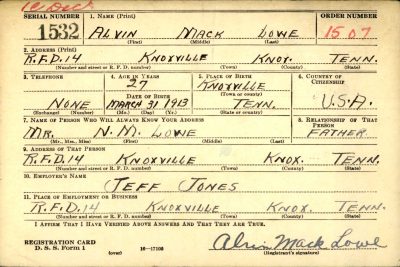 SERIAL NUMBER 1. NAME (Print) ORDER NUMBER
1532 ALVIN MACK LOWE 1507
(First) (Middle) (Last)
2. ADDRESS (Print)
R.F.D.14 KNOXVILLE KNOX. TENN.
(Number and street or R. F. D. number) (Town) (County) (State)
3. TELEPHONE 4. AGE IN YEARS 5. PLACE OF BIRTH 6. COUNTRY OF CITIZENSHIP
27 KNOXVILLE
DATE OF BIRTH (Town or county)
NONE MARCH 31 1913 TENN. U.S.A.
(Exchange) (Number) (Mo.) (Day) (Yr.) (State or country)
7. NAME OF PERSON WHO WILL ALWAYS KNOW YOUR ADDRESS 8. RELATIONSHIP OF THAT PERSON
MR. N. M. LOWE FATHER
(Mr., Mrs., Miss) (First) (Middle) (Last)
9. ADDRESS OF THAT PERSON
R.F.D.14 KNOXVILLE KNOX. TENN.
(Number and street or R. F. D. number) (Town) (County) (State)
10. EMPLOYER'S NAME
JEFF JONES
11. PLACE OF EMPLOYMENT OR BUSINESS
R.F.D.14 KNOXVILLE KNOX. TENN.
(Number and street or R. F. D. number) (Town) (County) (State)
I AFFIRM THAT I HAVE VERIFIED ABOVE ANSWERS AND THAT THEY ARE TRUE.
REGISTRATION CARD
D. S. S. Form 1 (over) 16—17105 Alvin Mack Lowe
(Registrant's signature)